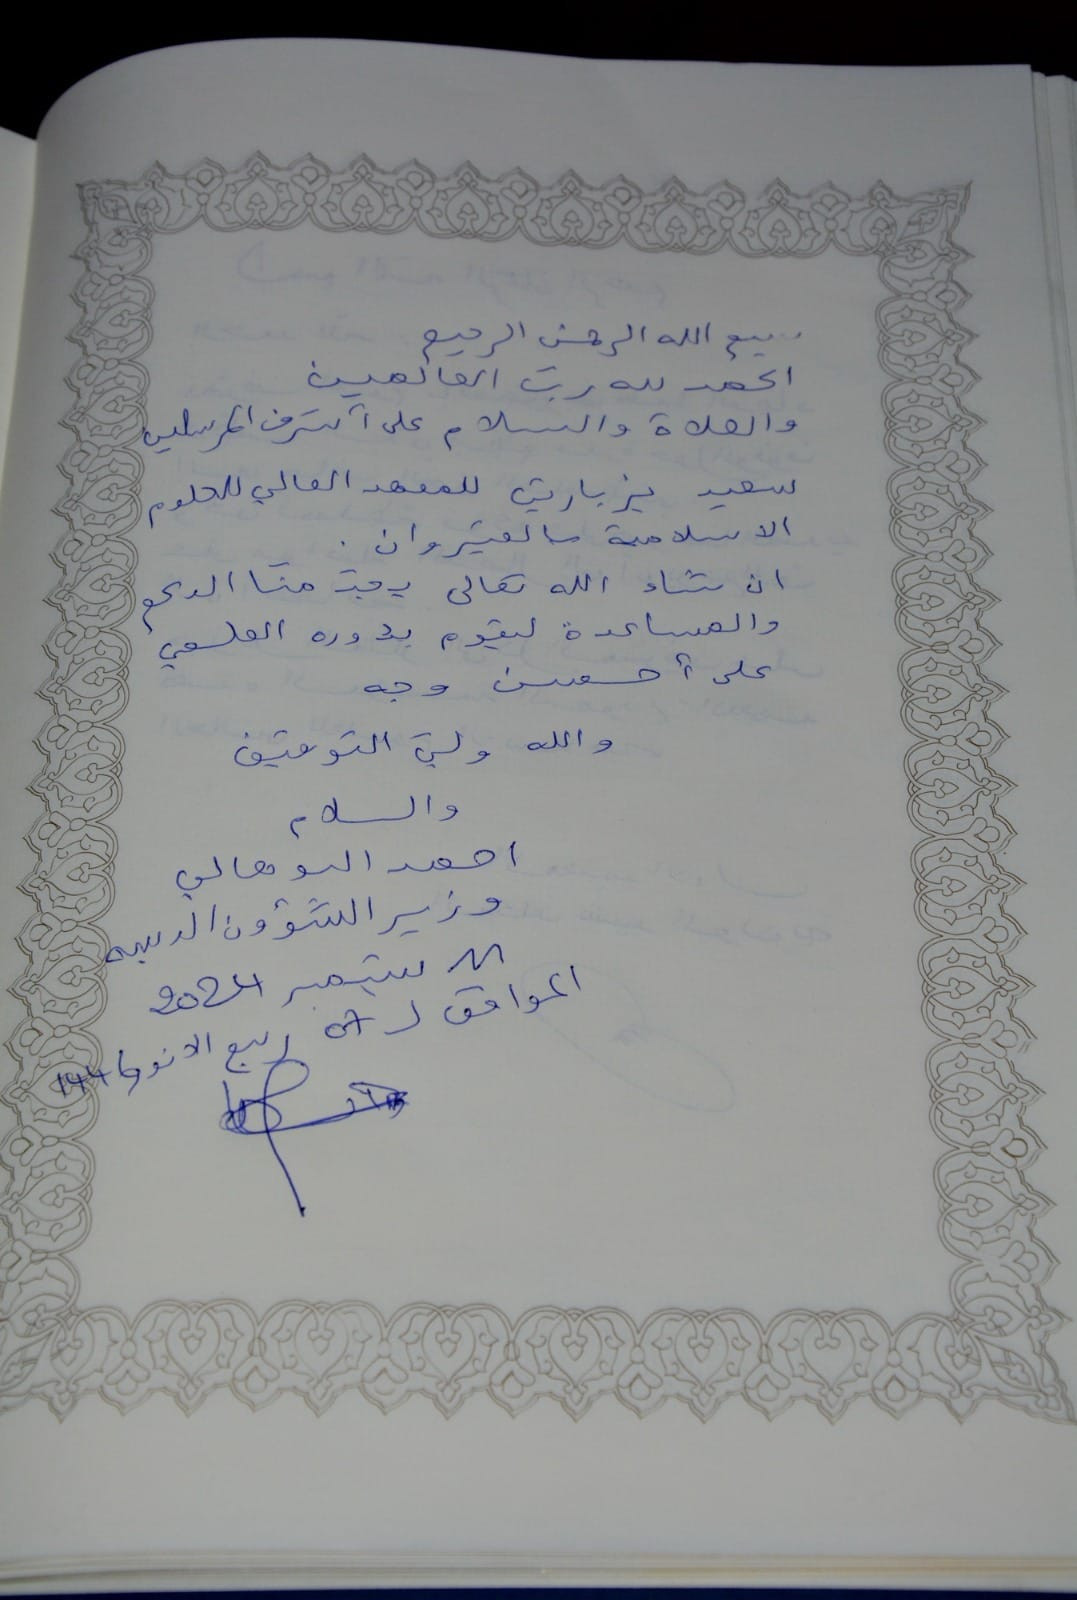 بسم الله الرحمن الرحيم
الحمد لله رب العالمين
والصلاة والسلام على أشرف المرسلين
سعيد بزيارتي للمعهد العالي للعلوم
الاسلامية بالقيروان .
ان شاء الله تعالى يجد منا الدعم
والمساعدة ليقوم بدوره العلمي
على أحسن وجه
والله ولي التوفيق
والسلام
احمد البوهالي
وزير الشؤون الدينية
سبتمبر 2024
الموافق لـ 07 ربيع الانور 1446